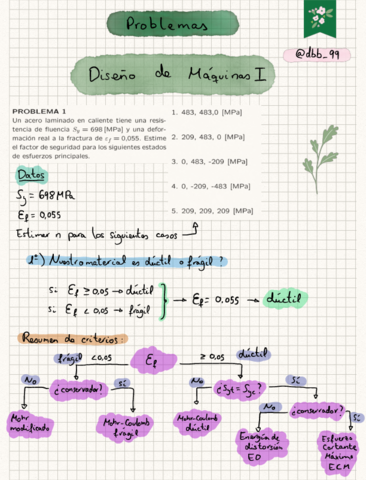 Problemas
@dbb_99
Diseño de Máquinas I
PROBLEMA 1
Un acero laminado en caliente tiene una resis-
tencia de fluencia Sy = 698 [MPa] y una defor-
mación real a la fractura de εf = 0,055. Estime
el factor de seguridad para los siguientes estados
de esfuerzos principales.
1. 483, 483,0 [MPa]
2. 209, 483, 0 [MPa]
3. 0, 483, -209 [MPa]
4. 0, -209, -483 [MPa]
5. 209, 209, 209 [MPa]
Datos
Sy = 698 MPa
Ef = 0,055
Estimar n para los siguientes casos
1º) Nuestro material es dúctil o frágil?
si Ef ≥ 0,05 → dúctil
si Ef < 0,05 → frágil
→ Ef = 0,055 → dúctil
Resumen de criterios:
frágil < 0,05 Ef ≥ 0,05 dúctil
No ¿conservador? Sí
No ¿Syt = Syc? Sí
Mohr modificado
Mohr-Coulomb frágil
Mohr-Coulomb dúctil
No ¿conservador? Sí
Energía de distorsión ED
Esfuerzo Cortante Máximo ECM